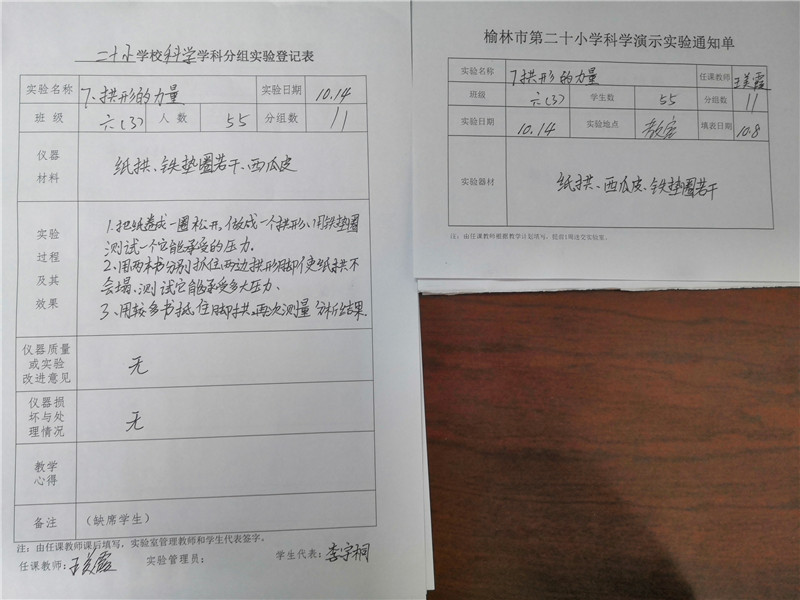 二十小学校科学学科分组实验登记表
实验名称 7、拱形的力量 实验日期 10.14
班级 六(3) 人数 55 分组数 11
仪器材料 纸拱、铁垫圈若干、西瓜皮
实验过程及其效果
1.把纸卷成一圈松开,做成一个拱形、用铁垫圈
测试一个它能承受的压力.
2、用两本书分别抵住两边拱形脚使纸拱不
会塌、测试它能承受多大压力.
3、用较多书抵住脚拱、再次测量分析结果
仪器质量或实验改进意见 无
仪器损坏与处理情况 无
教学心得
备注 (缺席学生)
注:由任课教师课后填写,实验室管理教师和学生代表签字。
任课教师:王美霞 实验管理员: 学生代表:李宇桐
榆林市第二十小学科学演示实验通知单
实验名称 7拱形的力量 任课教师 王美霞
班级 六(3) 学生数 55 分组数 11
实验日期 10.14 实验地点 教室 填表日期 10.8
实验器材 纸拱、西瓜皮、铁垫圈若干
注:由任课教师根据教学计划填写,提前1周送交实验室。